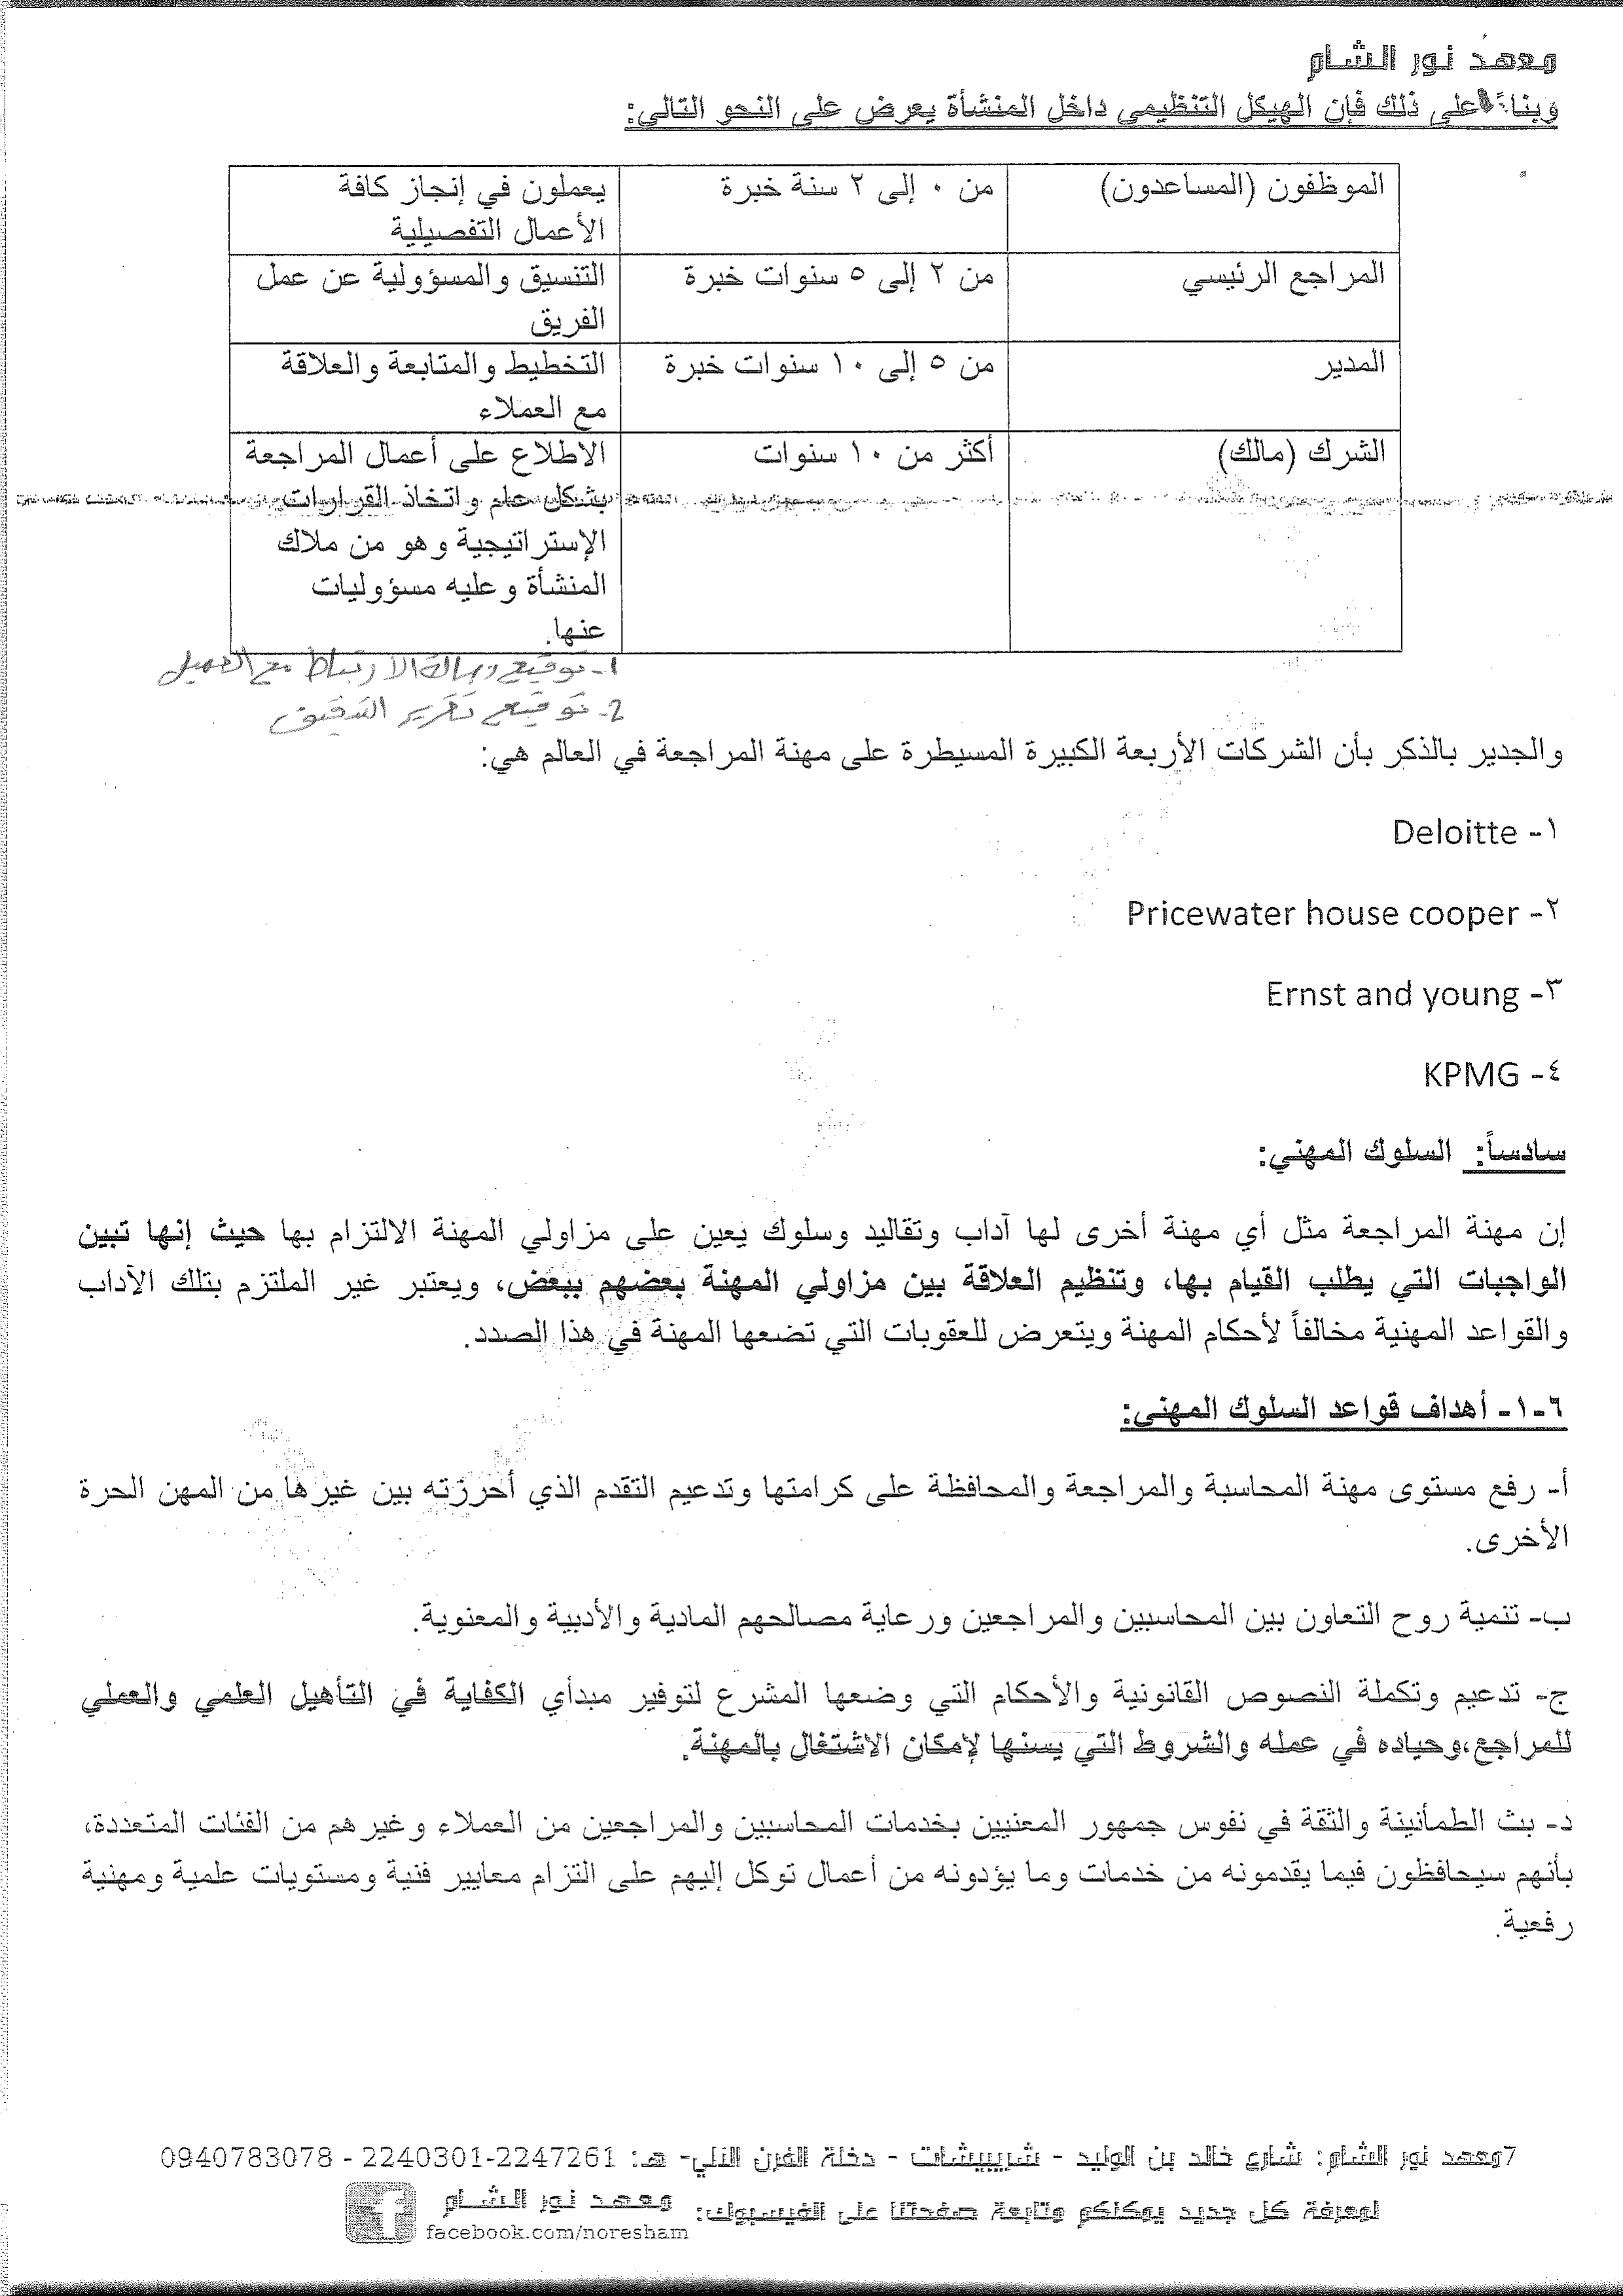 معهد نور الشام
وبناءً على ذلك فإن الهيكل التنظيمي داخل المنشأة يعرض على النحو التالي:
الموظفون (المساعدون) من ٠ إلى ٢ سنة خبرة يعملون في إنجاز كافة
الأعمال التفصيلية
المراجع الرئيسي من ٢ إلى ٥ سنوات خبرة التنسيق والمسؤولية عن عمل
الفريق
المدير من ٥ إلى ١٠ سنوات خبرة التخطيط والمتابعة والعلاقة
مع العملاء
الشرك (مالك) أكثر من ١٠ سنوات الاطلاع على أعمال المراجعة
بشكل عام واتخاذ القرارات
الإستراتيجية وهو من ملاك
المنشأة وعليه مسؤوليات
عنها.
1- توقيع رسالة الارتباط مع العميل
2- توقيع تقرير التدقيق
والجدير بالذكر بأن الشركات الأربعة الكبيرة المسيطرة على مهنة المراجعة في العالم هي:
١- Deloitte
٢- Pricewater house cooper
٣- Ernst and young
٤- KPMG
سادساً: السلوك المهني:
إن مهنة المراجعة مثل أي مهنة أخرى لها آداب وتقاليد وسلوك يعين على مزاولي المهنة الالتزام بها حيث إنها تبين
الواجبات التي يطلب القيام بها، وتنظيم العلاقة بين مزاولي المهنة بعضهم ببعض، ويعتبر غير الملتزم بتلك الآداب
والقواعد المهنية مخالفاً لأحكام المهنة ويتعرض للعقوبات التي تضعها المهنة في هذا الصدد.
٦-١- أهداف قواعد السلوك المهني:
أ- رفع مستوى مهنة المحاسبة والمراجعة والمحافظة على كرامتها وتدعيم التقدم الذي أحرزته بين غيرها من المهن الحرة
الأخرى.
ب- تنمية روح التعاون بين المحاسبين والمراجعين ورعاية مصالحهم المادية والأدبية والمعنوية.
ج- تدعيم وتكملة النصوص القانونية والأحكام التي وضعها المشرع لتوفير مبدأي الكفاية في التأهيل العلمي والعملي
للمراجع،وحياده في عمله والشروط التي يسنها لإمكان الاشتغال بالمهنة.
د- بث الطمأنينة والثقة في نفوس جمهور المعنيين بخدمات المحاسبين والمراجعين من العملاء وغيرهم من الفئات المتعددة،
بأنهم سيحافظون فيما يقدمونه من خدمات وما يؤدونه من أعمال توكل إليهم على التزام معايير فنية ومستويات علمية ومهنية
رفعية.
7معهد نور الشام: شارع خالد بن الوليد - شريبيشات - دخلة الفرن الالي- هـ: 2247261-2240301 - 0940783078
لمعرفة كل جديد يمكنكم متابعة صفحتنا على الفيسبوك: معهد نور الشام
facebook.com/noresham